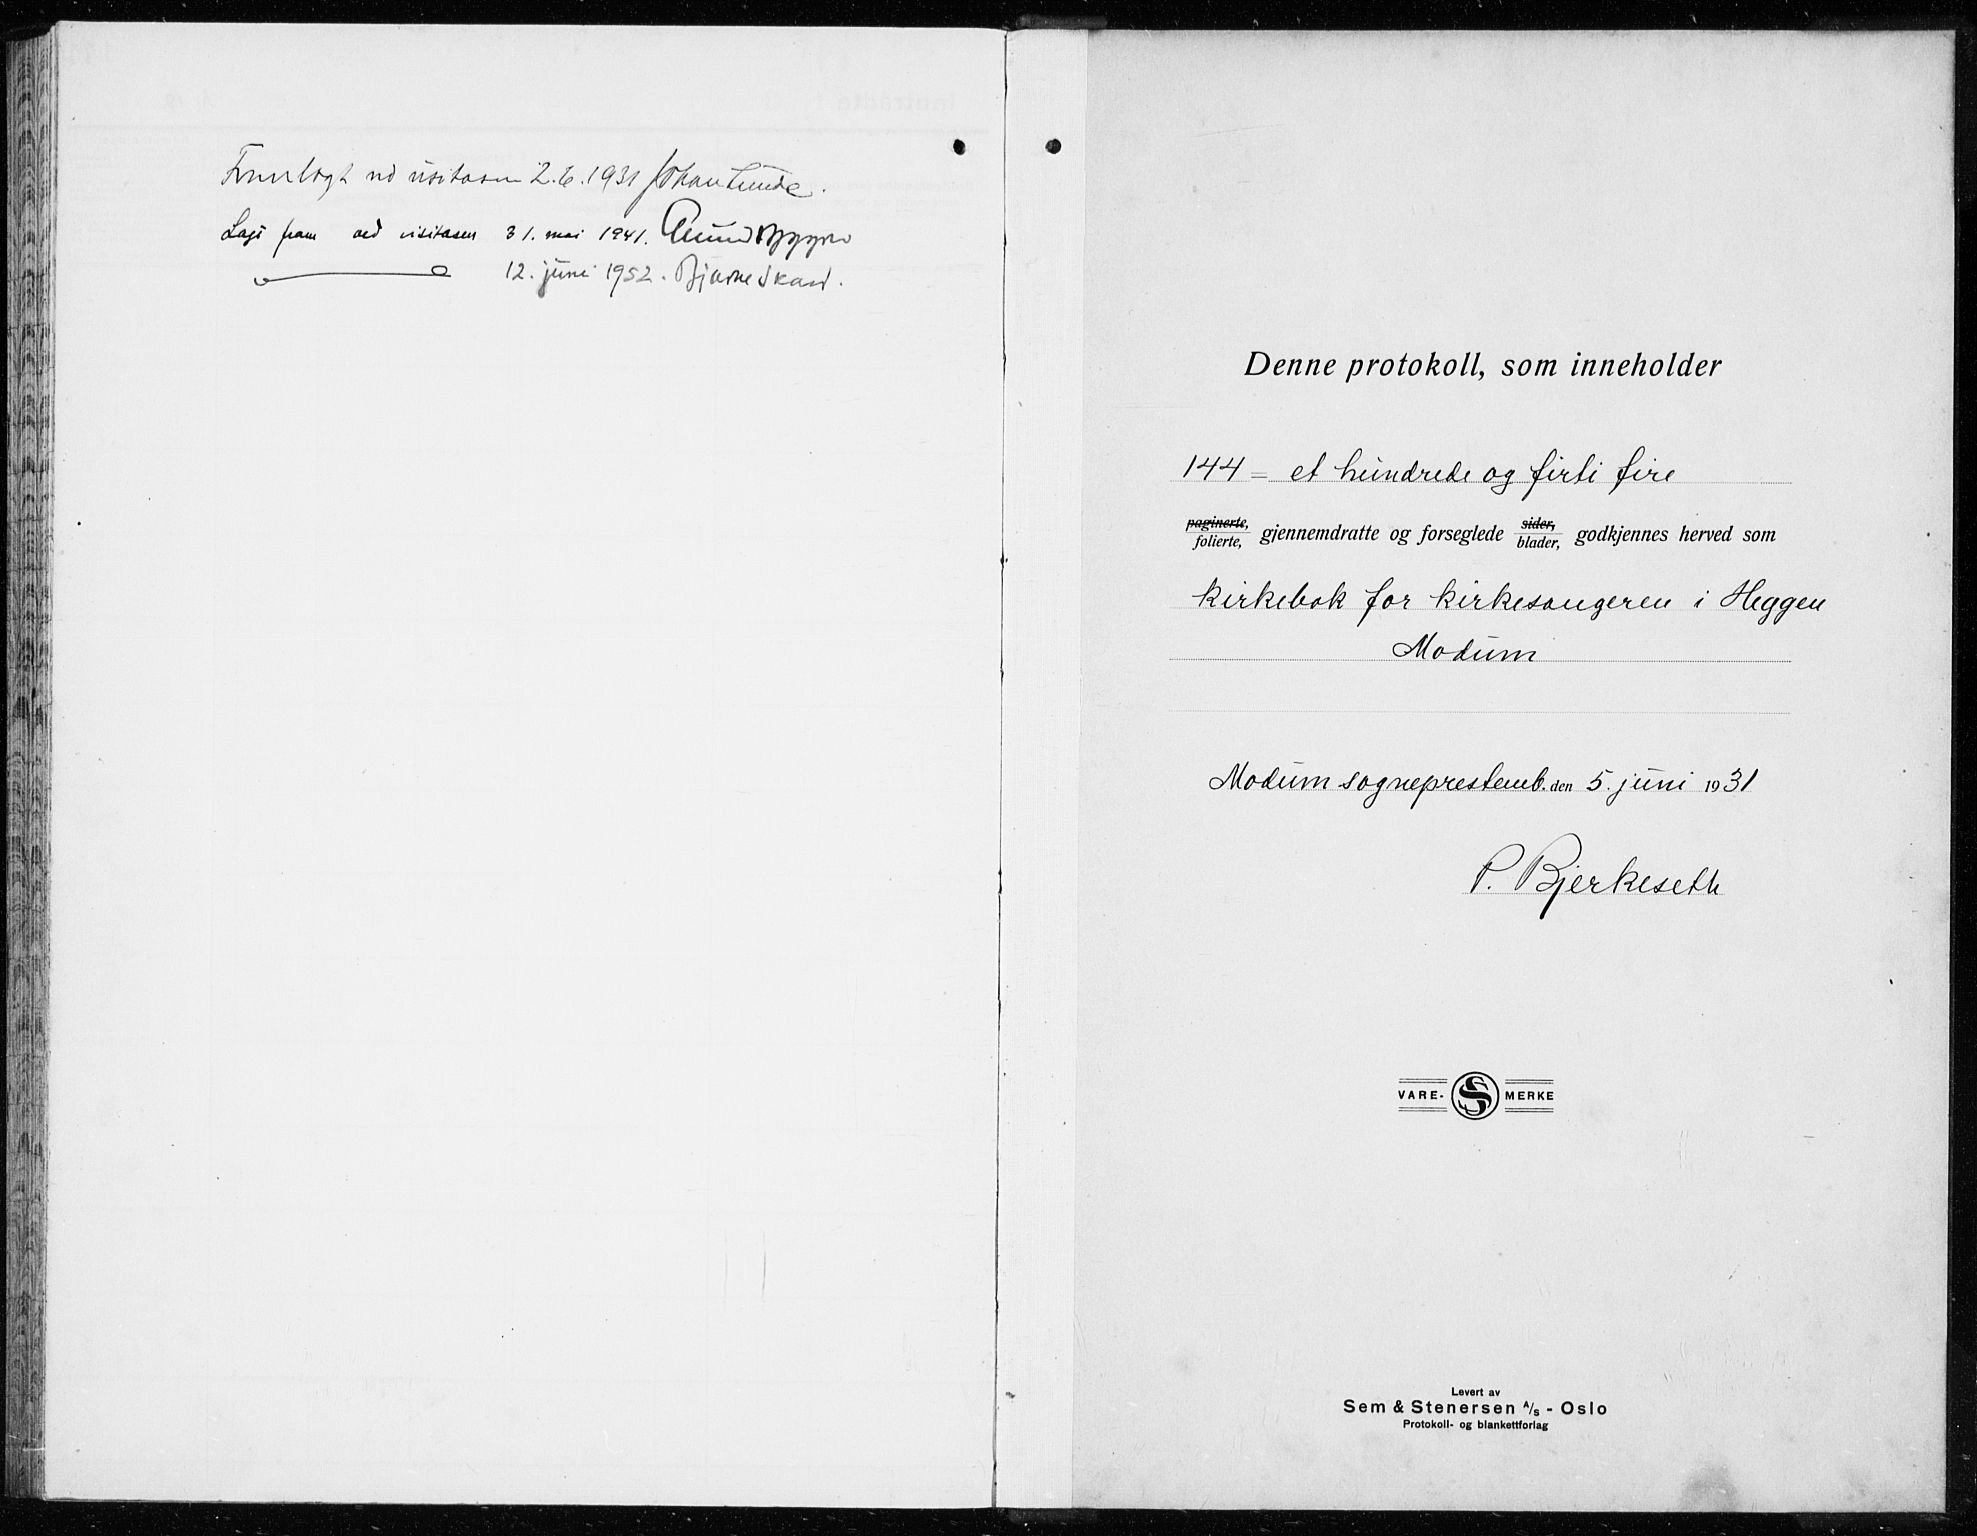 Fremlagt ved visitasen 2.6.1931 Johan Lunde.
Lagt fram ved visitasen 31. mai 1941.
12. juni 1952. Bjarne Skard.
Denne protokoll, som inneholder
144 = et hundrede og firti fire
paginerte, folierte, gjennemdratte og forseglede sider, blader, godkjennes herved som
kirkebok for kirkesangeren i Heggen
Modum
Modum sogneprestemb. den 5. juni 1931
P. Bjerkeseth
VARE- S MERKE
Levert av
Sem & Stenersen A/S - Oslo
Protokoll- og blankettforlag